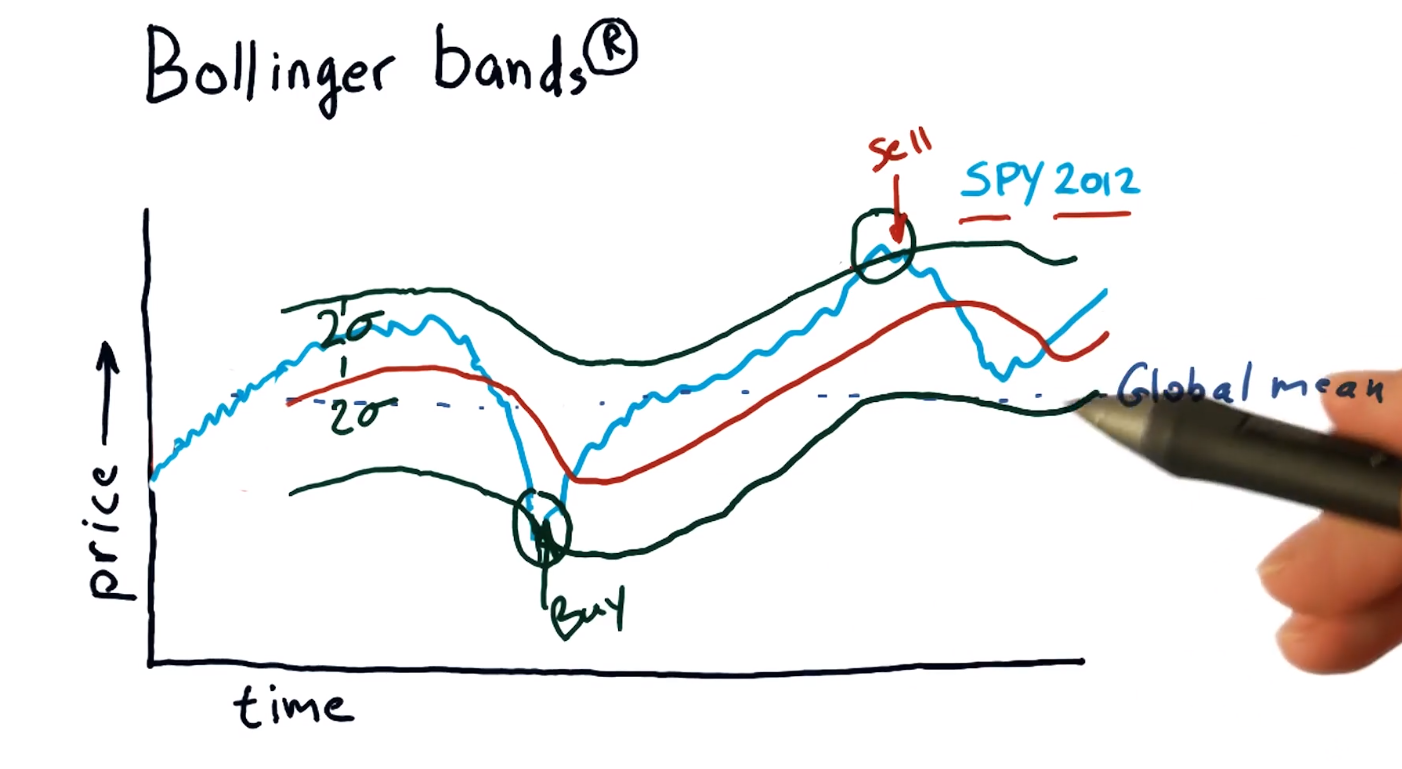 Bollinger bands®
sell
SPY 2012
2σ
2σ
Global mean
price
Buy
time